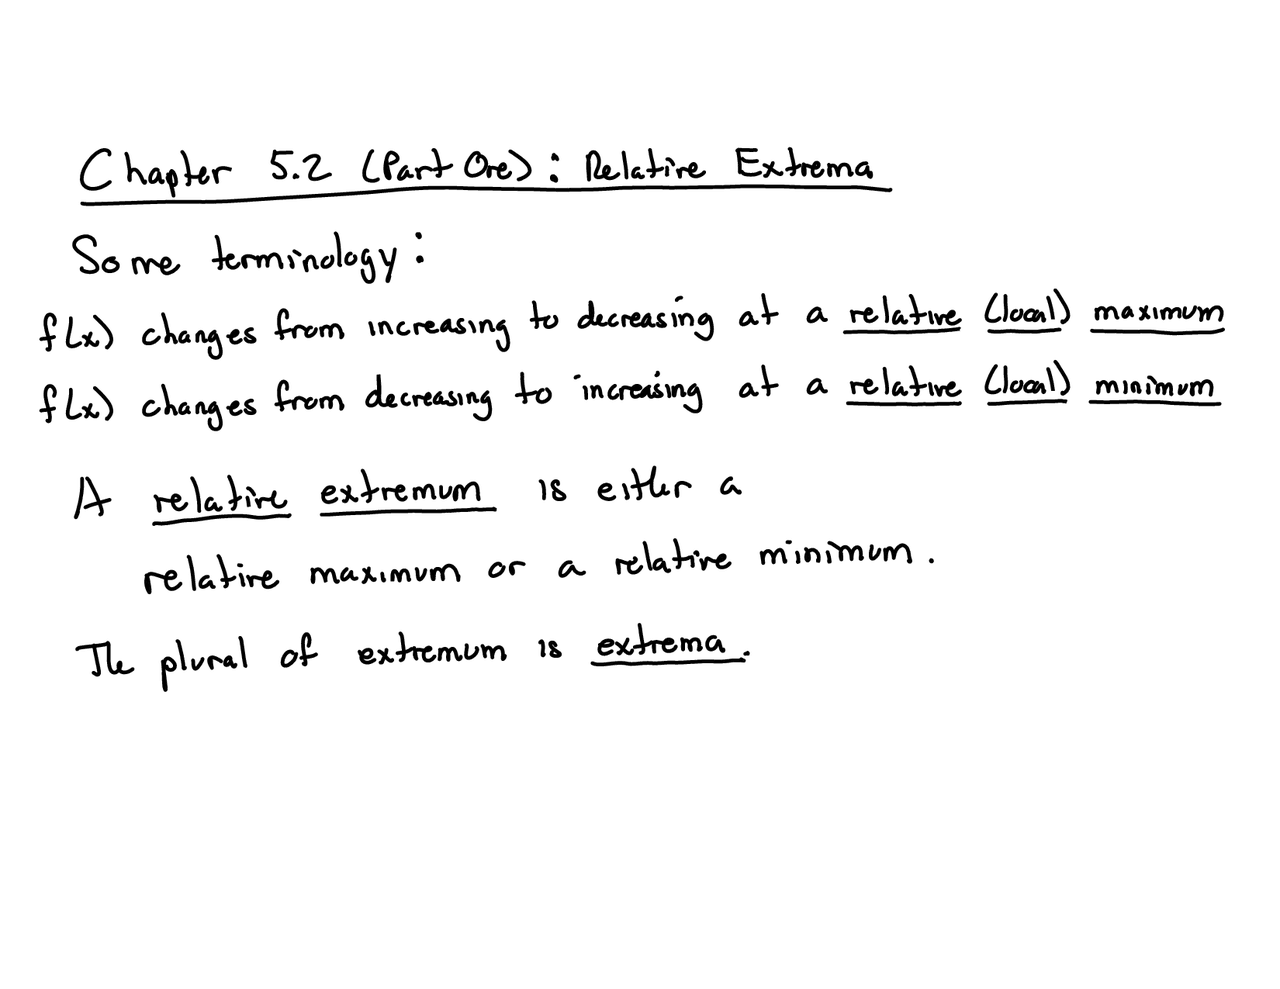 Chapter 5.2 (Part One): Relative Extrema
Some terminology:
f(x) changes from increasing to decreasing at a relative (local) maximum
f(x) changes from decreasing to increasing at a relative (local) minimum
A relative extremum is either a
relative maximum or a relative minimum.
The plural of extremum is extrema.